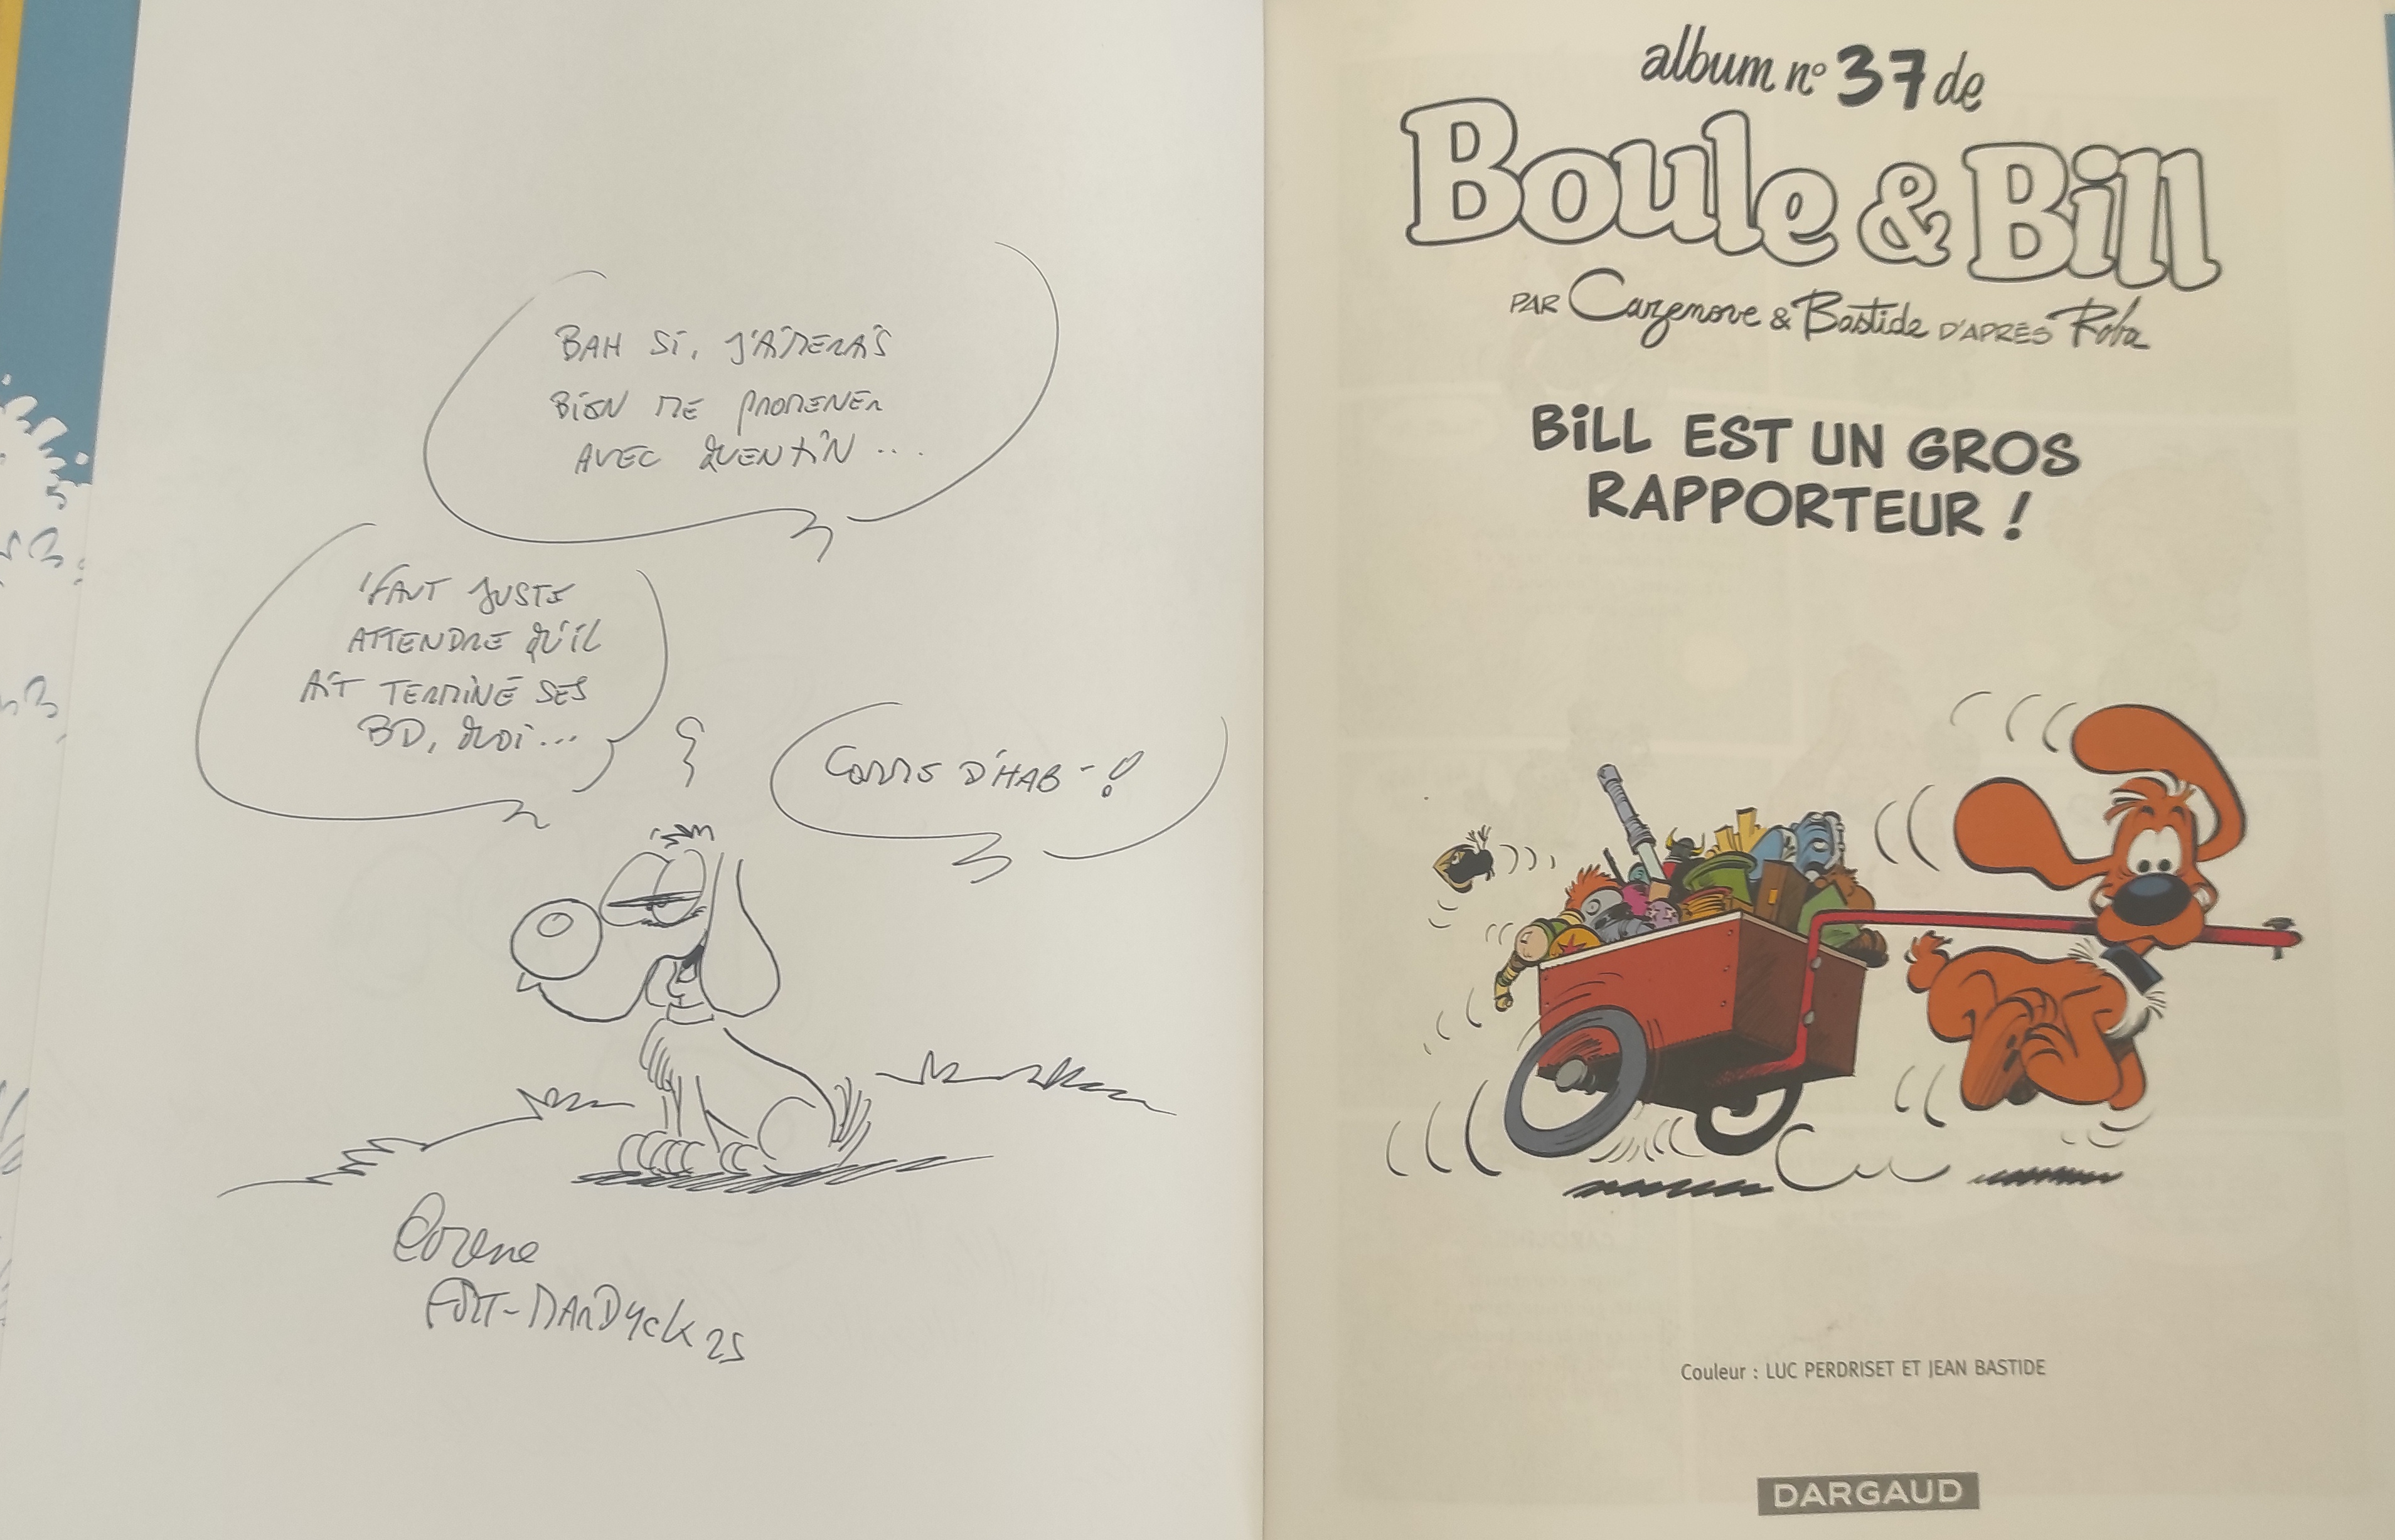 BAH SI, J'AIMERAIS
BIEN ME PROMENER
AVEC QUENTIN...
'FAUT JUSTE
ATTENDRE QU'IL
AIT TERMINÉ SES
BD, QUOI...
COMME D'HAB' !
FORT-MARDYCK 25
album n° 37 de
Boule & Bill
PAR Cazenove & Bastide D'APRÈS Roba
BILL EST UN GROS
RAPPORTEUR !
Couleur : LUC PERDRISET ET JEAN BASTIDE
DARGAUD